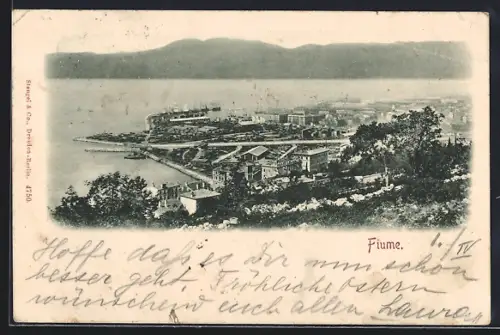 Stengel & Co., Dresden-Berlin. 4750
Fiume.
1./IV
Hoffe daß es Dir nun schon
besser geht. Fröhliche Ostern
wünschend euch allen Laura